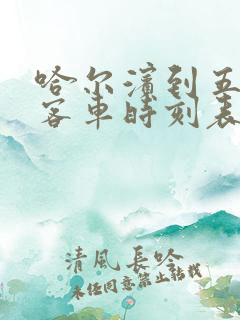 哈尔滨到五
客车时刻表
清風長吟
未经同意禁止转载